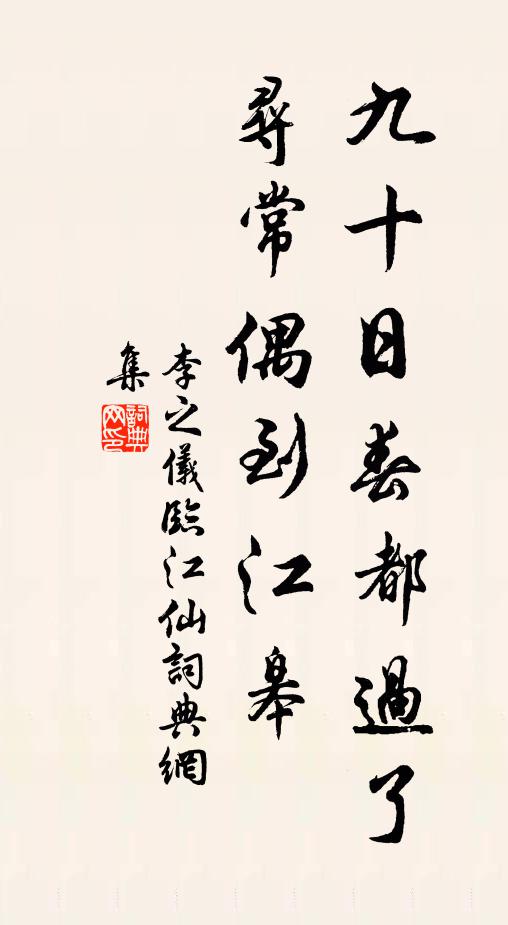 九十日春都過了
尋常偶到江皋
李之儀臨江仙詞典網
集
詞典网印